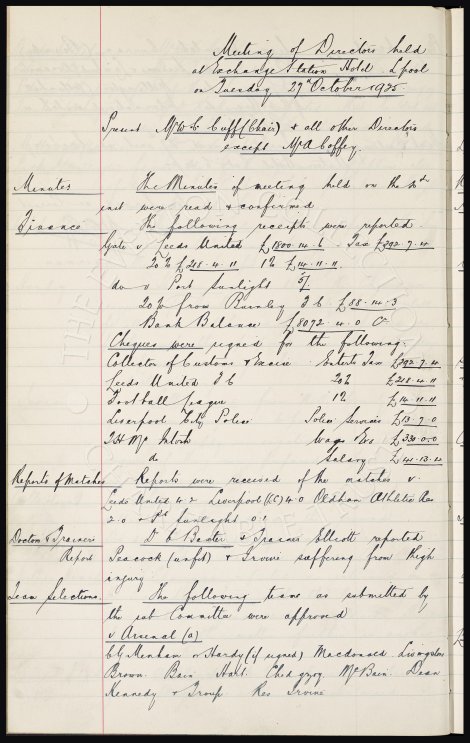 Meeting of Directors held
at Exchange Station Hotel L'pool
on Tuesday 29th October 1935
Present Mr W C Cuff (Chair) & all other Directors
except Mr A Coffey.
Minutes The Minutes of meeting held on the
inst were read & confirmed
Finance The following receipts were reported
Gate v Leeds United £1800.14.6 Tax £292.7.4
20% £218.4.11 1% £14.11.11.
do v Port Sunlight 5/
20% from Burnley F C £88.14.3
Bank Balance £8072.4.0
Cheques were signed for the following:
Collector of Customs & Excise Enterts Tax £292.7.4
Leeds United F C 20% £218.4.11
Football League 1% £14.11.11
Liverpool City Police Police Services £13.7.0
Wages £330.0.0
do Salary
Reports of Matches Reports were received of the matches v
Leeds United 4.2 Liverpool 4.0 Oldham Athletic Res
2.0 & Pt Sunlight 0.1
Doctors & Trainers Dr C Baxter & Trainer Elliott reported
Report Peacock (unfit) & Irvine suffering from thigh
injury.
Team Selections. The following teams as submitted by
the sub Committee were approved
v Arsenal (a)
C G Menham or Hardy (if signed) Macdonald. Livingstone
Brown. Bain. Hart. Chedgzoy. McBain. Dean
Kennedy & Troup Res Irvine